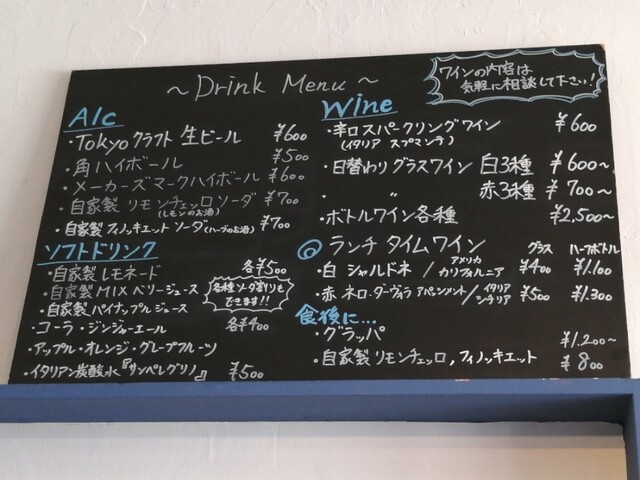 ~Drink Menu~
Alc
・Tokyoクラフト 生ビール ¥600
・角ハイボール ¥500
・メーカーズマークハイボール ¥600
・自家製 リモンチェッロソーダ ¥700
(レモンのお酒)
・自家製 フィノッキエット ソーダ(ハーブのお酒) ¥700
ソフトドリンク
・自家製 レモネード 各¥500
・自家製 MIX ベリージュース
・自家製 パイナップルジュース
各種ソーダ割りも
できます!!
・コーラ・ジンジャーエール 各¥400
・アップル・オレンジ・グレープフルーツ
・イタリアン炭酸水『サンペレグリノ』 ¥500
ワインの内容は
気軽に相談して下さい!
Wine
・辛口スパークリングワイン ¥600
(イタリア スプマンテ)
・日替わり グラスワイン 白3種 ¥600~
・ 〃 赤3種 ¥700~
・ボトルワイン各種 ¥2,500~
◎ランチ タイムワイン グラス ハーフボトル
・白 シャルドネ / アメリカ カリフォルニア ¥400 ¥1,100
・赤 ネロ・ダーヴィラ アパシメント/イタリア シチリア ¥500 ¥1,300
食後に...
・グラッパ ¥1,200~
・自家製 リモンチェッロ, フィノッキエット ¥800